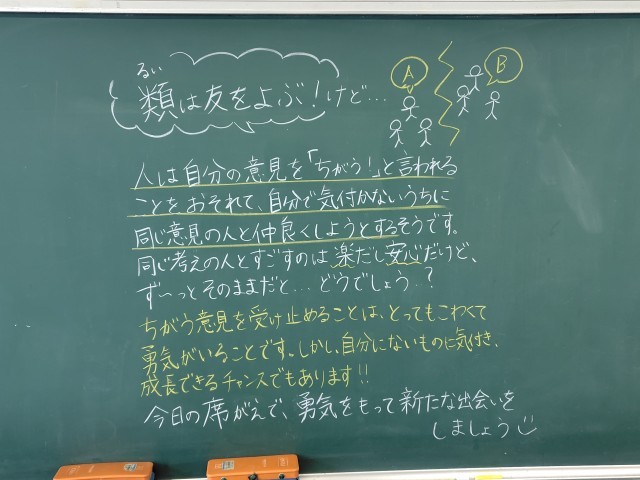 るい
類は友をよぶ!けど…
A
B
人は自分の意見を「ちがう!」と言われる
ことをおそれて、自分で気付かないうちに
同じ意見の人と仲良くしようとするそうです。
同じ考えの人とすごすのは楽だし安心だけど、
ず〜っとそのままだと…どうでしょう…?
ちがう意見を受け止めることは、とってもこわくて
勇気がいることです。しかし、自分にないものに気付き、
成長できるチャンスでもあります!!
今日の席がえで、勇気をもって新たな出会いを
しましょう